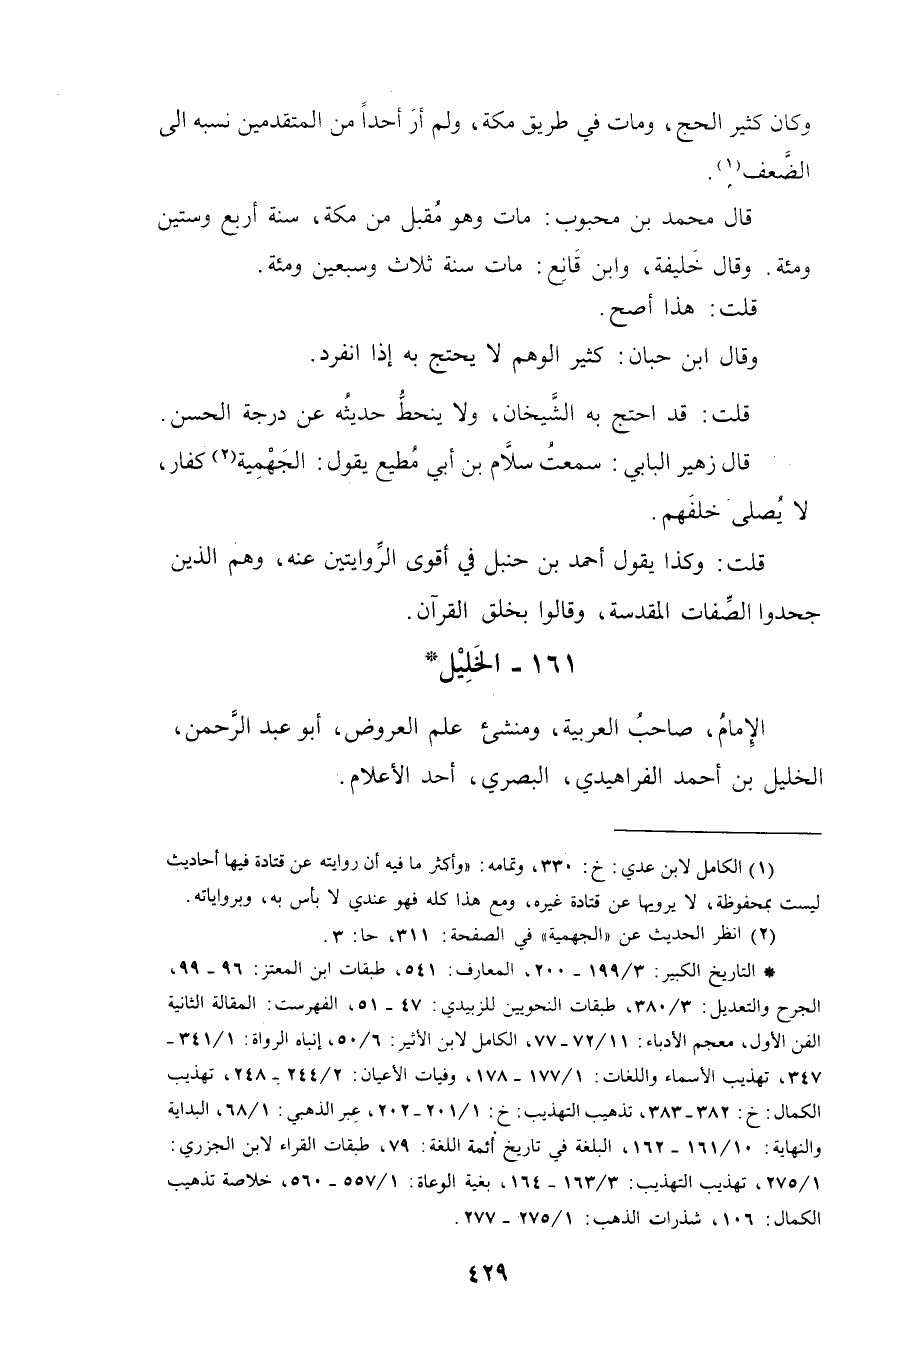 وكان كثير الحج، ومات في طريق مكة، ولم أرَ أحداً من المتقدمين نسبه الى
الضَّعف(١).
قال محمد بن محبوب: مات وهو مُقبل من مكة، سنة أربع وستين
ومئة. وقال خَليفة، وابن قَانِع: مات سنة ثلاث وسبعين ومئة.
قلت: هذا أصح.
وقال ابن حبان: كثير الوهم لا يحتج به إذا انفرد.
قلت: قد احتج به الشَّيخان، ولا ينحطُّ حديثُه عن درجة الحسن.
قال زهير البابي: سمعتُ سلاَّم بن أبي مُطيع يقول: الجَهْمِية(٢) كفار،
لا يُصلى خلفَهم.
قلت: وكذا يقول أحمد بن حنبل في أقوى الرِّوايتين عنه، وهم الذين
جحدوا الصِّفات المقدسة، وقالوا بخلق القرآن.
١٦١ - الخَلِيْل*
الإِمامُ، صاحبُ العربية، ومنشئ علم العروض، أبو عبد الرَّحمن،
الخليل بن أحمد الفراهيدي، البصري، أحد الأعلام.
(١) الكامل لابن عدي: خ: ٣٣٠، وتمامه: «وأكثر ما فيه أن روايته عن قتادة فيها أحاديث
ليست بمحفوظة، لا يرويها عن قتادة غيره، ومع هذا كله فهو عندي لا بأس به، وبرواياته.
(٢) انظر الحديث عن «الجهمية» في الصفحة: ٣١١، حا: ٣.
* التاريخ الكبير: ١٩٩/٣ - ٢٠٠، المعارف: ٥٤١، طبقات ابن المعتز: ٩٦ - ٩٩،
الجرح والتعديل: ٣٨٠/٣، طبقات النحويين للزبيدي: ٤٧ - ٥١، الفهرست: المقالة الثانية
الفن الأول، معجم الأدباء: ٧٢/١١ - ٧٧، الكامل لابن الأثير: ٥٠/٦، إنباه الرواة: ٣٤١/١ -
٣٤٧، تهذيب الأسماء واللغات: ١٧٧/١ - ١٧٨، وفيات الأعيان: ٢٤٤/٢ - ٢٤٨، تهذيب
الكمال: خ: ٣٨٢ - ٣٨٣، تذهيب التهذيب: خ: ٢٠١/١ - ٢٠٢، عبر الذهبي: ٦٨/١، البداية
والنهاية: ١٦١/١٠ - ١٦٢، البلغة في تاريخ أئمة اللغة: ٧٩، طبقات القراء لابن الجزري:
٢٧٥/١، تهذيب التهذيب: ١٦٣/٣ - ١٦٤، بغية الوعاة: ٥٥٧/١ - ٥٦٠، خلاصة تذهيب
الكمال: ١٠٦، شذرات الذهب: ٢٧٥/١ - ٢٧٧.
٤٢٩